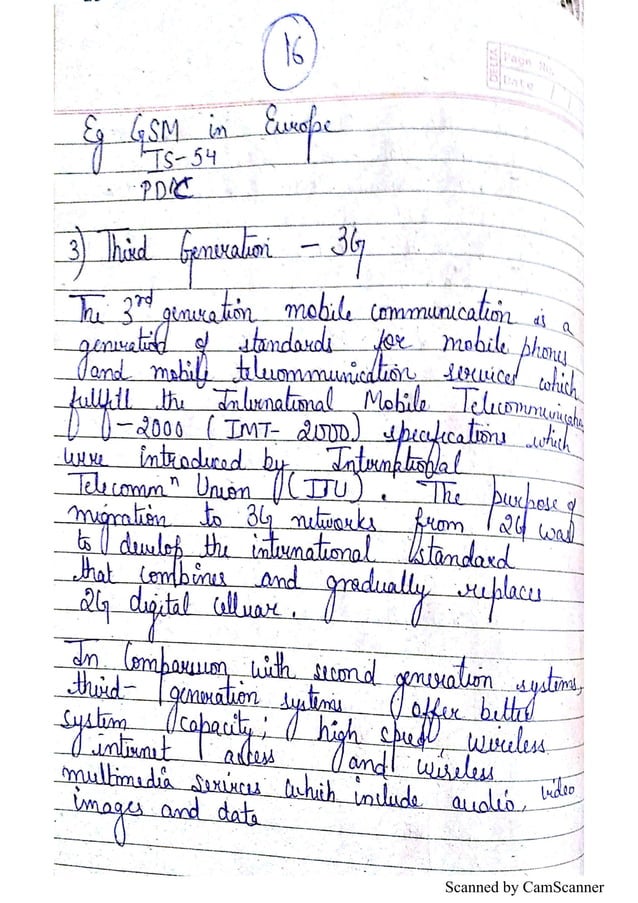 16
DELTA Page No.
Date
Eg GSM in Europe
IS-54
PDC
3) Third Generation - 3G
The 3rd generation mobile communication is a
generation of standards for mobile phones
and mobile telecommunication services which
fullfill the International Mobile Telecommunication
-2000 (IMT- 2000) specifications which
were introduced by International
Telecommⁿ Union (ITU). The purpose of
migration to 3G networks from 2G was
to develop the international standard
that combines and gradually replaces
2G digital celluar.
In Comparison with second generation systems,
third- generation systems offer better
system capacity; high speed, wireless
internet access and wireless
multimedia services which include audio, video
images and data
Scanned by CamScanner